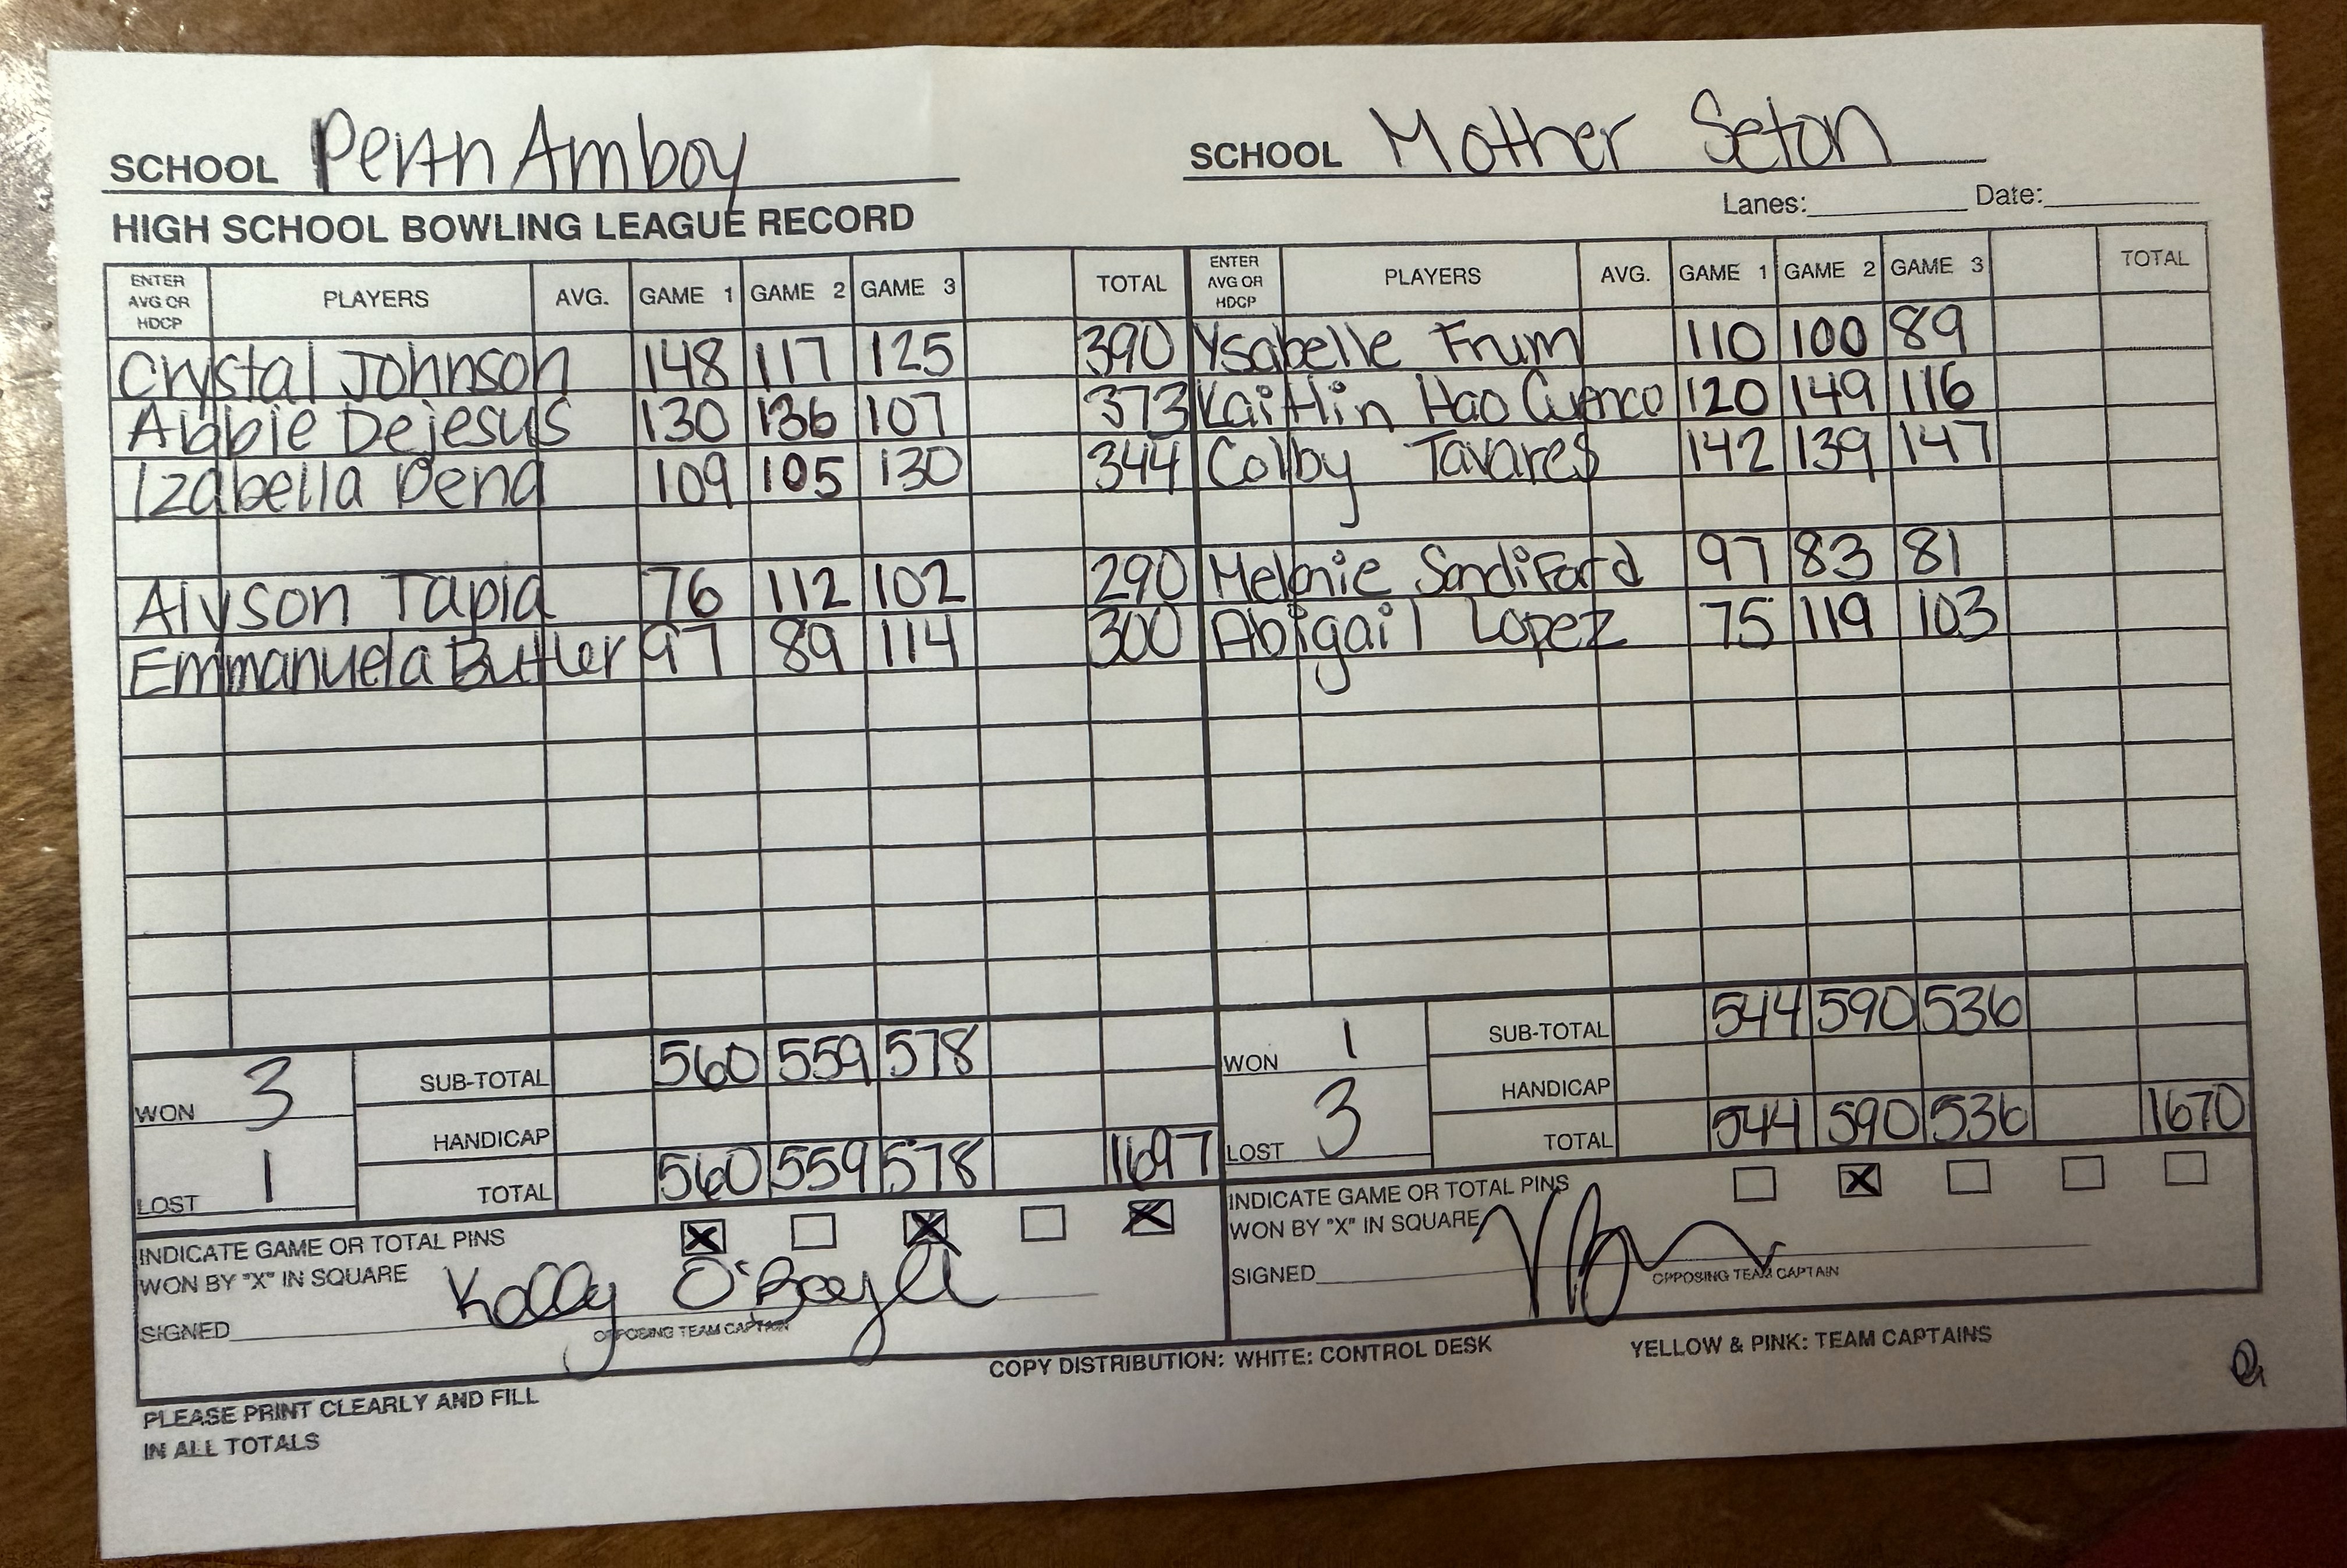 SCHOOL Perth Amboy SCHOOL Mother Seton
HIGH SCHOOL BOWLING LEAGUE RECORD Lanes: Date:
ENTER AVG OR HDCP PLAYERS AVG. GAME 1 GAME 2 GAME 3 TOTAL ENTER AVG OR HDCP PLAYERS AVG. GAME 1 GAME 2 GAME 3 TOTAL
Crystal Johnson 148 117 125 390 Ysabelle Frum 110 100 89
Abbie Dejesus 130 136 107 373 Kaitlin Hao Cuenco 120 149 116
Izabella Pena 109 105 130 344 Colby Tavares 142 139 147
Alyson Tapia 76 112 102 290 Melanie Sandiford 97 83 81
Emmanuela Butler 97 89 114 300 Abigail Lopez 75 119 103
WON 3 SUB-TOTAL 560 559 578 WON 1 SUB-TOTAL 544 590 536
HANDICAP HANDICAP
LOST 1 TOTAL 560 559 578 1697 LOST 3 TOTAL 544 590 536 1670
INDICATE GAME OR TOTAL PINS X X X INDICATE GAME OR TOTAL PINS X
WON BY "X" IN SQUARE WON BY "X" IN SQUARE
SIGNED SIGNED
OPPOSING TEAM CAPTAIN OPPOSING TEAM CAPTAIN
COPY DISTRIBUTION: WHITE: CONTROL DESK YELLOW & PINK: TEAM CAPTAINS
PLEASE PRINT CLEARLY AND FILL
IN ALL TOTALS